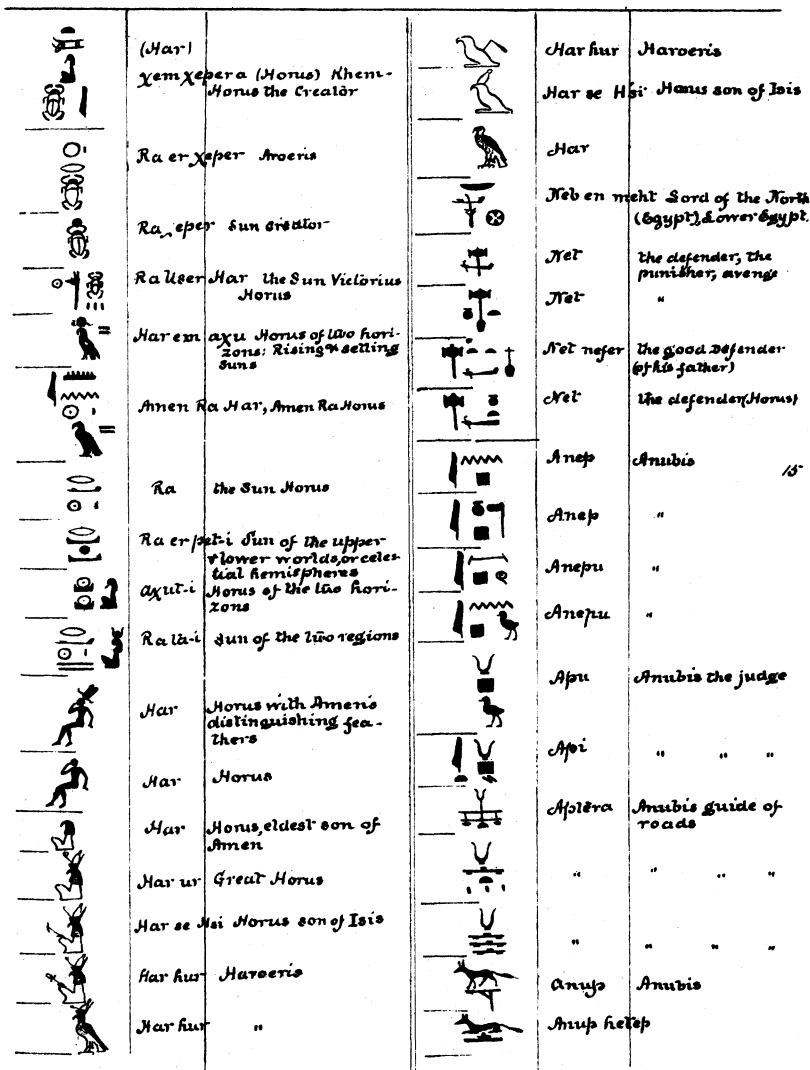 (Har)
χem χepera (Horus) Khem-
Horus the Creator
Ra er χeper Aroeris
Ra χeper Sun Creator
Ra User Har the Sun Victorius
Horus
Har em aχu Horus of two hori-
zons: Rising & setting
suns
Amen Ra Har, Amen Ra Horus
Ra the Sun Horus
Ra er pet-i Sun of the upper
& lower worlds, or celes-
tial hemispheres
aχut-i Horus of the two hori-
zons
Ra ta-i Sun of the two regions
Har Horus with Amen's
distinguishing fea-
thers
Har Horus
Har Horus, eldest son of
Amen
Har ur Great Horus
Har se Hsi Horus son of Isis
Har hur Haroeris
Har hur "
Har hur Haroeris
Har se Hsi Horus son of Isis
Har
Neb en meht Lord of the North
(Egypt), Lower Egypt.
Net the defender, the
punisher, avenge
Net "
Net nefer the good Defender
(of his father)
Net the defender (Horus)
Anep Anubis
15
Anep "
Anepu "
Anepu "
Apu Anubis the judge
Api " " "
Aptera Anubis guide of
roads
" " " "
" " " "
Anup Anubis
Anup hetep